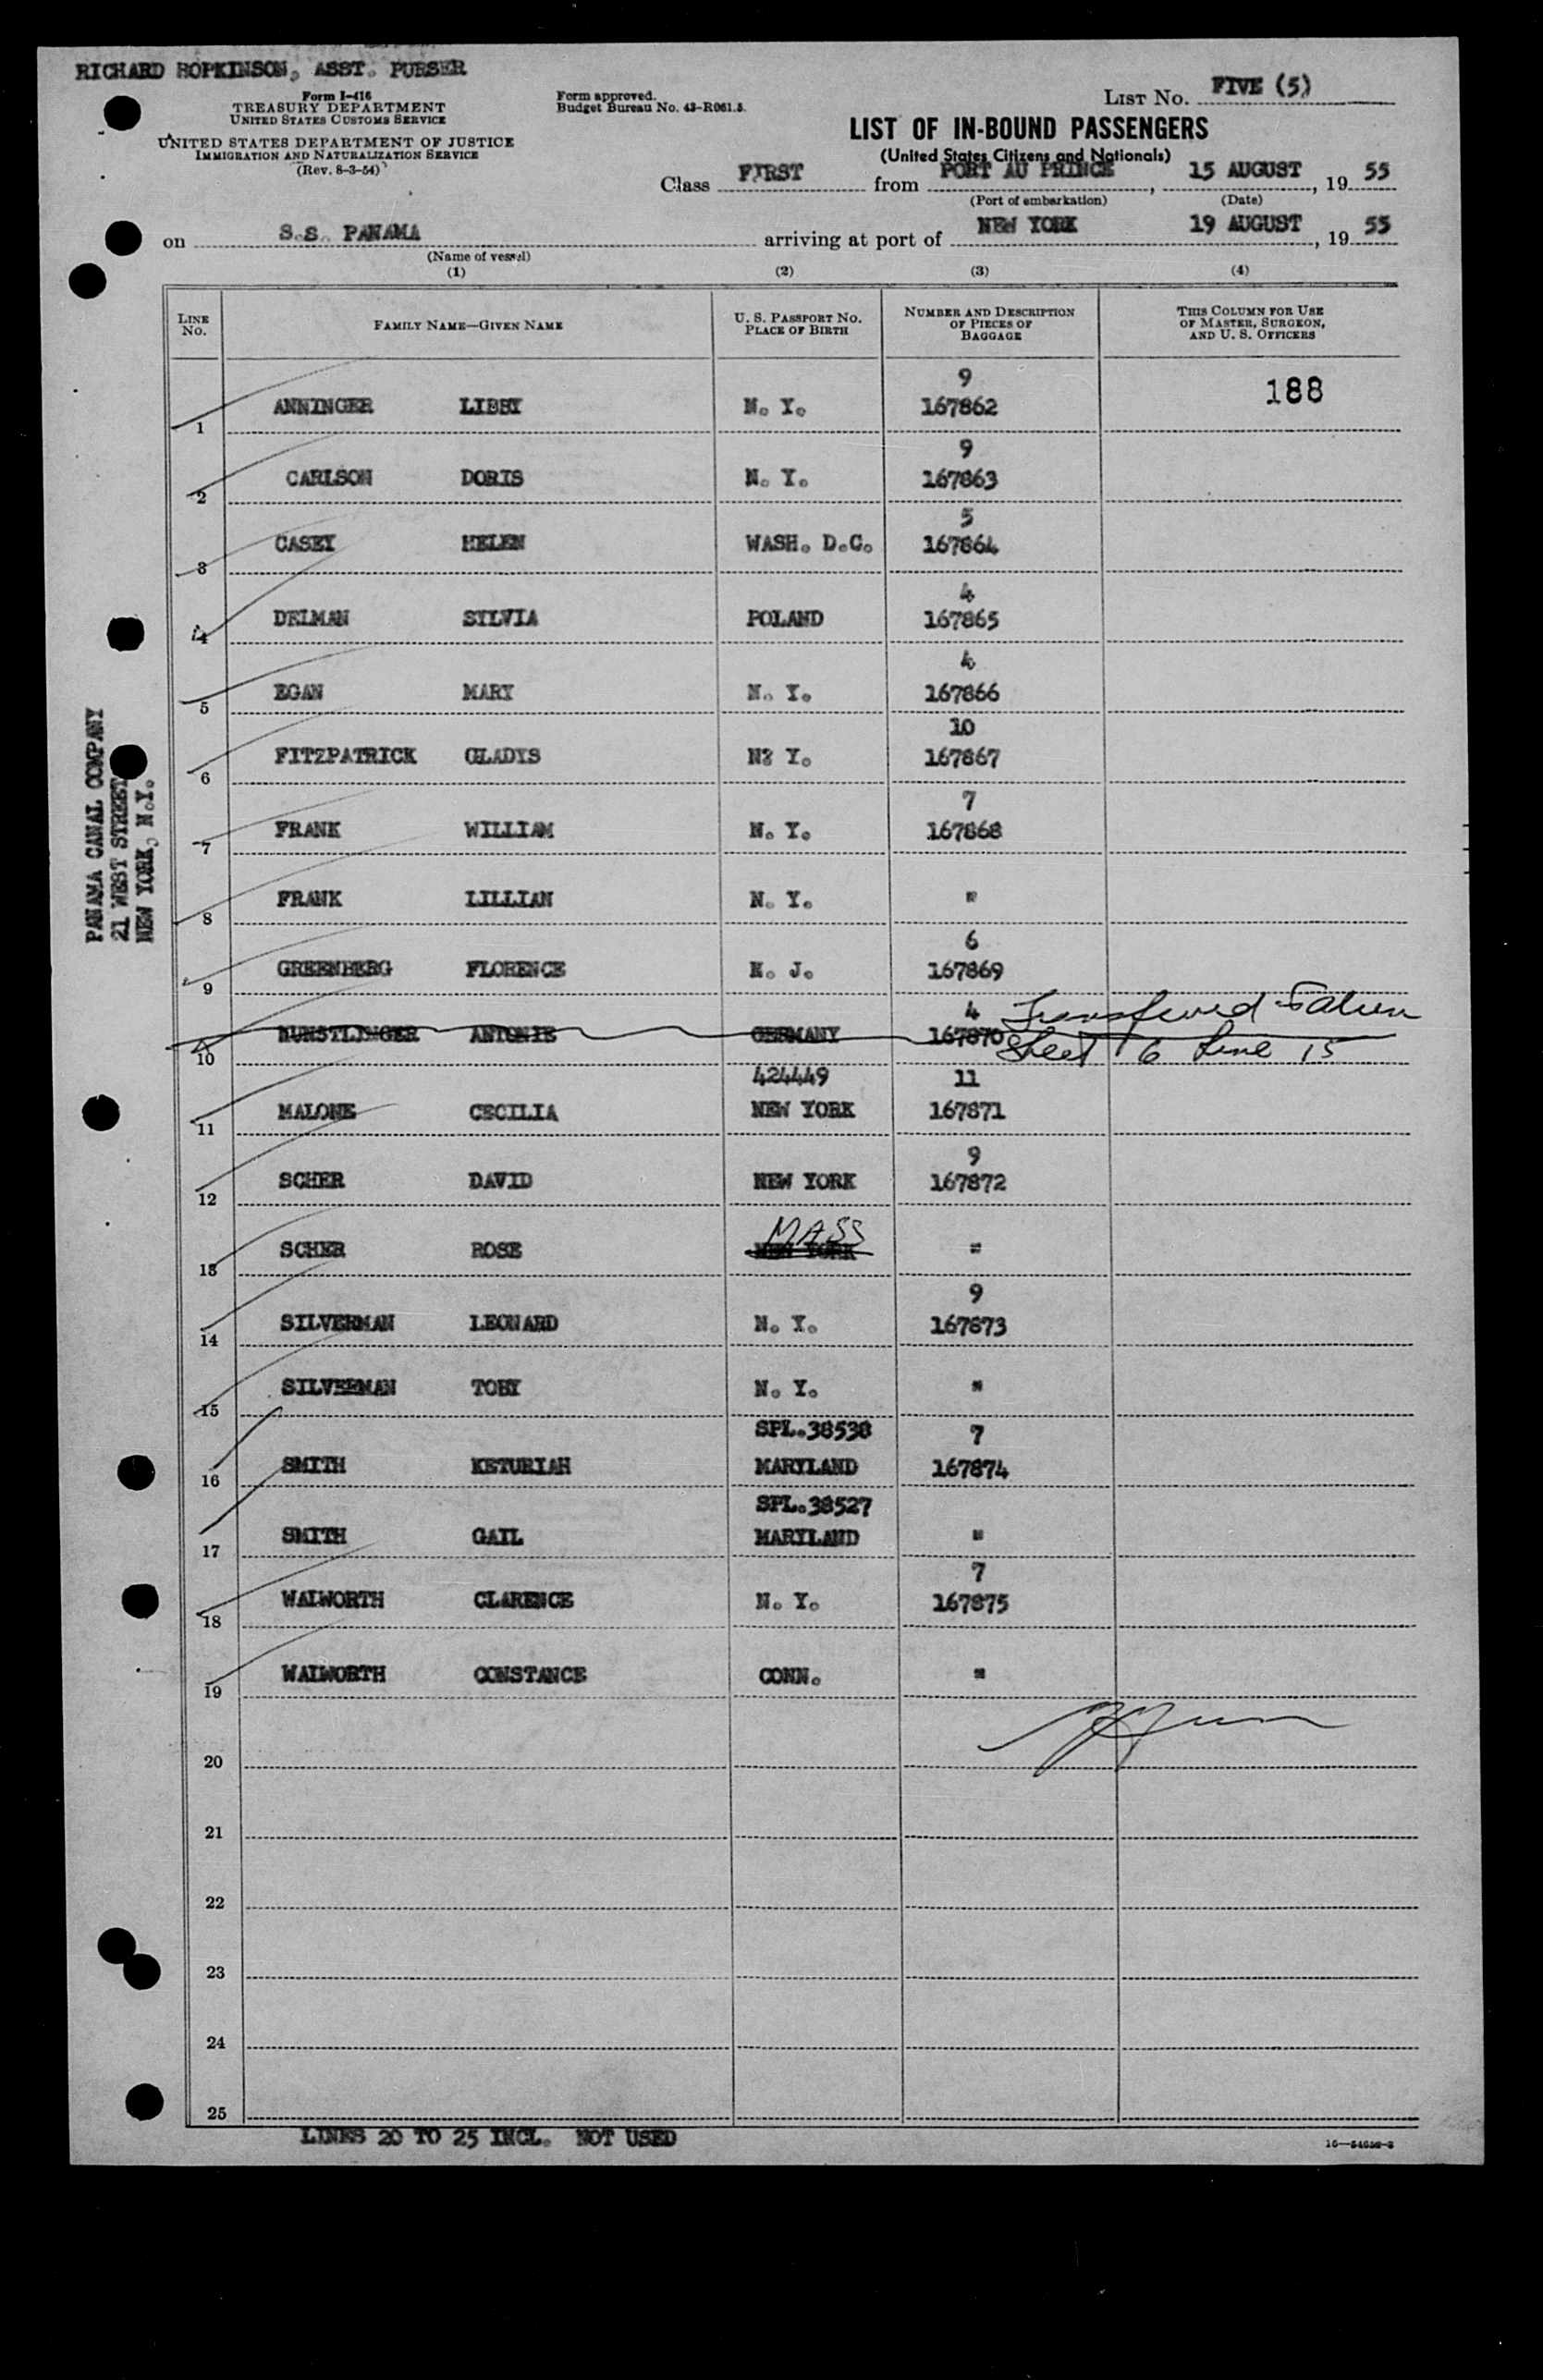 RICHARD HOPKINSON, ASST. PURSER
Form I-416
TREASURY DEPARTMENT
UNITED STATES CUSTOMS SERVICE
UNITED STATES DEPARTMENT OF JUSTICE
IMMIGRATION AND NATURALIZATION SERVICE
(Rev. 8-3-54)
Form approved.
Budget Bureau No. 43-R061.3.
LIST NO. FIVE (5)
LIST OF IN-BOUND PASSENGERS
(United States Citizens and Nationals)
Class FIRST from PORT AU PRINCE, 15 AUGUST, 19 55
(Port of embarkation) (Date)
on S.S. PANAMA arriving at port of NEW YORK 19 AUGUST, 19 55
(Name of vessel)
(1) (2) (3) (4)
LINE NO. FAMILY NAME—GIVEN NAME U. S. PASSPORT NO. PLACE OF BIRTH NUMBER AND DESCRIPTION OF PIECES OF BAGGAGE THIS COLUMN FOR USE OF MASTER, SURGEON, AND U. S. OFFICERS
9 188
1 ANNINGER LIBBY N. Y. 167862
9
2 CARLSON DORIS N. Y. 167863
5
3 CASEY HELEN WASH. D.C. 167864
4
4 DELMAN SYLVIA POLAND 167865
4
5 EGAN MARY N. Y. 167866
10
6 FITZPATRICK GLADYS N? Y. 167867
7
7 FRANK WILLIAM N. Y. 167868
8 FRANK LILLIAN N. Y. "
6
9 GREENBERG FLORENCE N. J. 167869
4 Transferred
10 KUNSTLINGER ANTONIE GERMANY 167870 Sheet 6 Line 15
424449 11
11 MALONE CECILIA NEW YORK 167871
9
12 SCHER DAVID NEW YORK 167872
MASS
13 SCHER ROSE NEW YORK "
9
14 SILVERMAN LEONARD N. Y. 167873
15 SILVERMAN TOBY N. Y. "
SPL.38538 7
16 SMITH KETURIAH MARYLAND 167874
SPL.38527
17 SMITH GAIL MARYLAND "
7
18 WALWORTH CLARENCE N. Y. 167875
19 WALWORTH CONSTANCE CONN. "
20
21
22
23
24
25
LINES 20 TO 25 INCL. NOT USED
PANAMA CANAL COMPANY
21 WEST STREET
NEW YORK, N.Y.